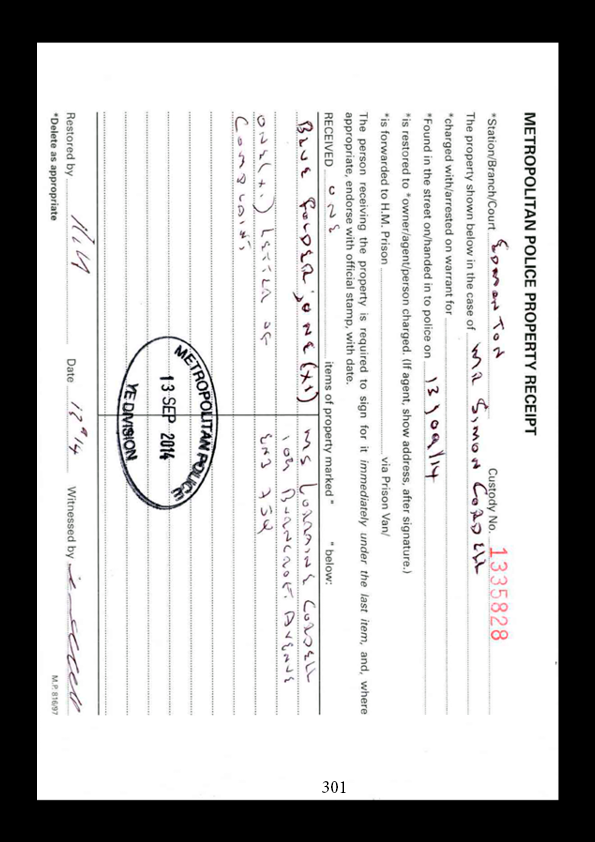 METROPOLITAN POLICE PROPERTY RECEIPT
*Station/Branch/Court EDMONTON Custody No. 1335828
The property shown below in the case of MR SIMON CORDELL
*charged with/arrested on warrant for
*Found in the street on/handed in to police on 13/09/14
*is restored to *owner/agent/person charged. (If agent, show address, after signature.)
*is forwarded to H.M. Prison via Prison Van/
The person receiving the property is required to sign for it immediately under the last item, and, where
appropriate, endorse with official stamp, with date.
RECEIVED ONE items of property marked " " below:
BLUE FOLDER, ONE (X1) MS LORRAINE CORDELL
ONE (X1) LETTER OF 109 BURNCROFT AVENUE
COMPLAINTS EN3 7JQ
METROPOLITAN POLICE
13 SEP 2014
YE DIVISION
Restored by Date Witnessed by
*Delete as appropriate M.P. 816/97
301